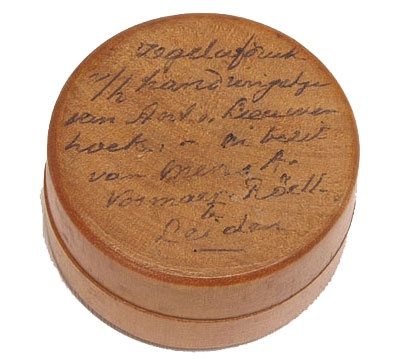 zegelafdruk
v/h handringetje
van Ant. v. Leeuwen
hoek, - in bezit
van Mevr. A.
Vosmaer-Röell
te
Leiden